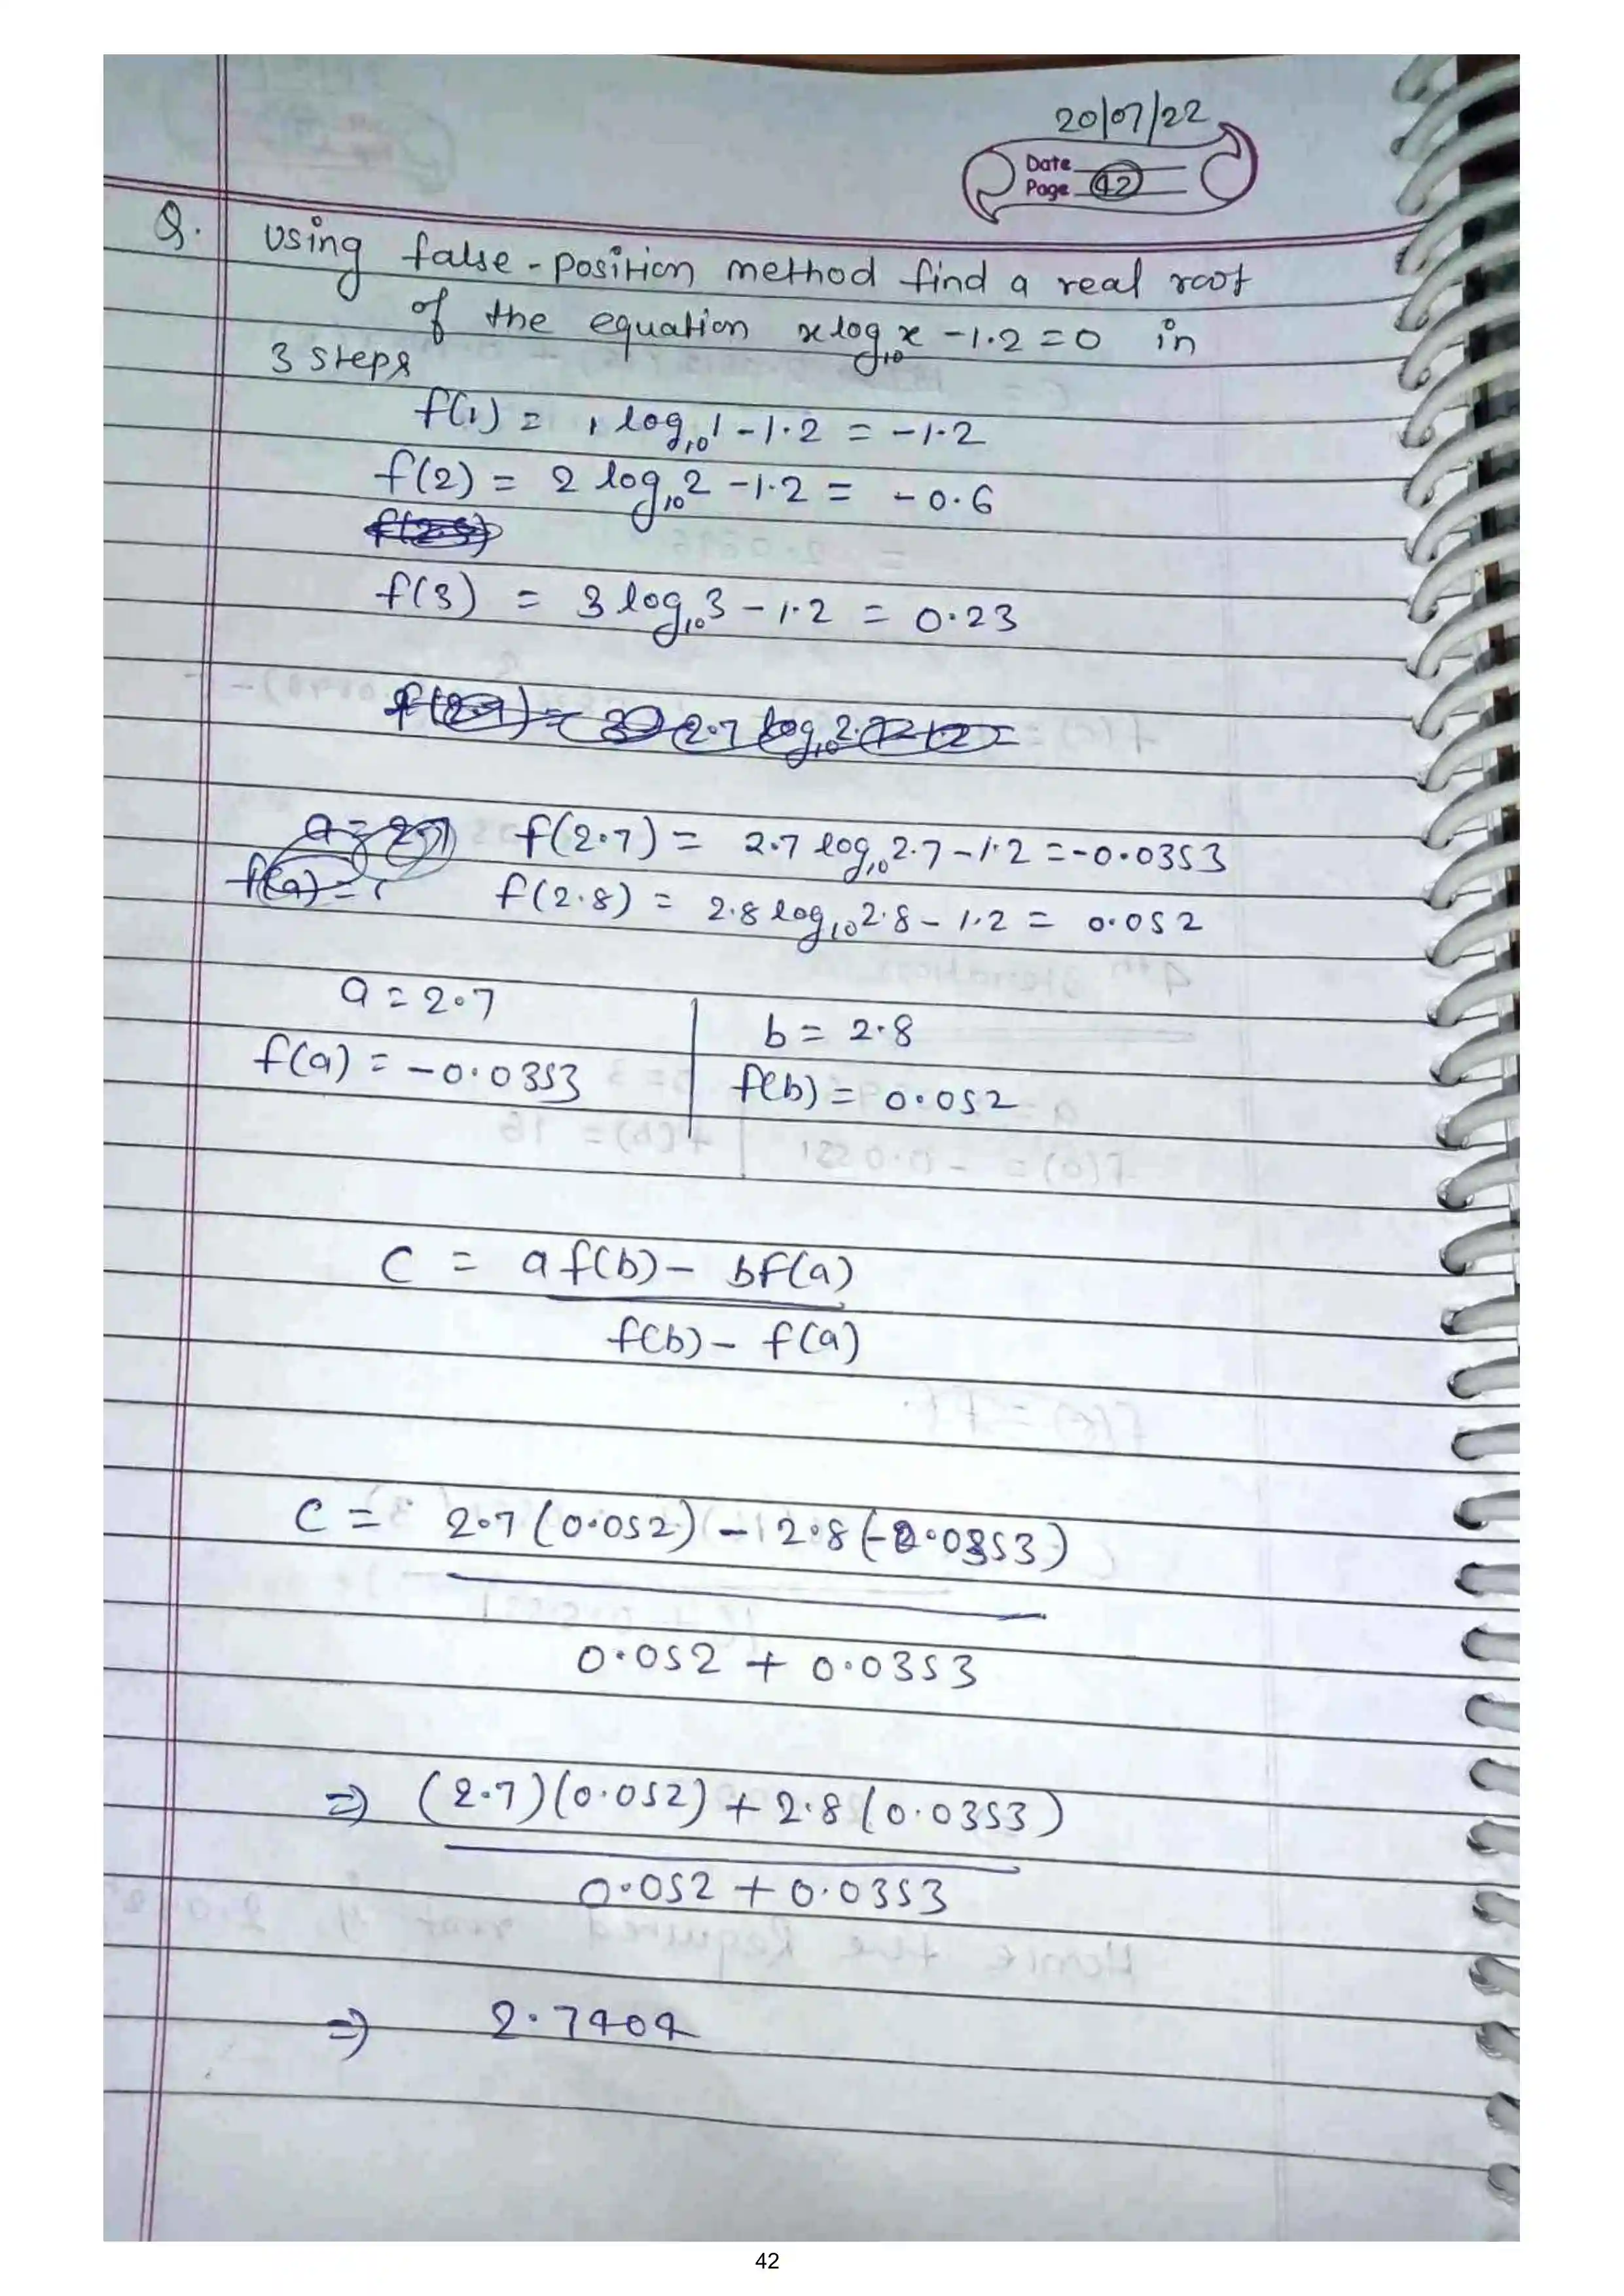 20/07/22
Date
Page 42
Q. Using false-position method find a real root
of the equation x log₁₀x - 1.2 = 0 in
3 steps
f(1) = 1 log₁₀1 - 1.2 = -1.2
f(2) = 2 log₁₀2 - 1.2 = -0.6
f(3) = 3 log₁₀3 - 1.2 = 0.23
f(2.7) = 2.7 log₁₀2.7 - 1.2 = -0.0353
f(2.8) = 2.8 log₁₀2.8 - 1.2 = 0.052
a = 2.7 | b = 2.8
f(a) = -0.0353 | f(b) = 0.052
C = a f(b) - b f(a)
f(b) - f(a)
C = 2.7(0.052) - 2.8(-0.0353)
0.052 + 0.0353
⇒ (2.7)(0.052) + 2.8(0.0353)
0.052 + 0.0353
⇒ 2.7404
42